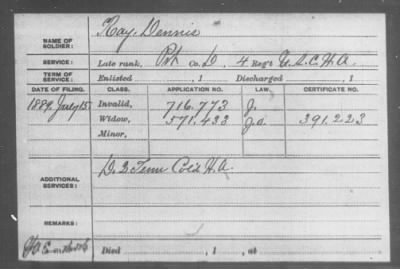 NAME OF SOLDIER: Ray, Dennis
SERVICE: Late rank, Pvt Co. D, 4 Reg't U.S.C.H.A.
TERM OF SERVICE: Enlisted , 1 Discharged , 1
DATE OF FILING. CLASS. APPLICATION NO. LAW. CERTIFICATE NO.
1889, July 15 Invalid, 716.773 J.
Widow, 571.433 J.a. 391.223
Minor,
ADDITIONAL SERVICES: D. 2 Tenn Cold H.A.
REMARKS:
Died , 1 , at